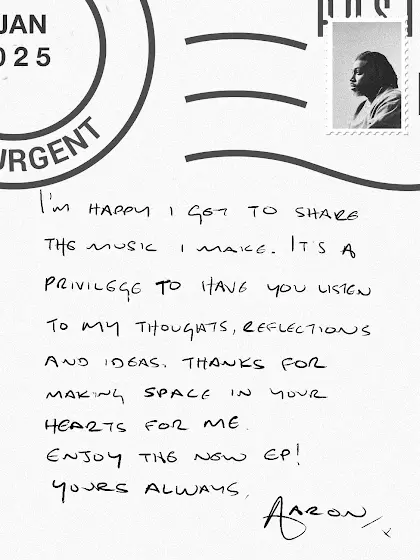 JAN
2025
URGENT
I'M HAPPY I GET TO SHARE
THE MUSIC I MAKE. IT'S A
PRIVILEGE TO HAVE YOU LISTEN
TO MY THOUGHTS, REFLECTIONS
AND IDEAS. THANKS FOR
MAKING SPACE IN YOUR
HEARTS FOR ME.
ENJOY THE NEW EP!
YOURS ALWAYS,
AARON/x